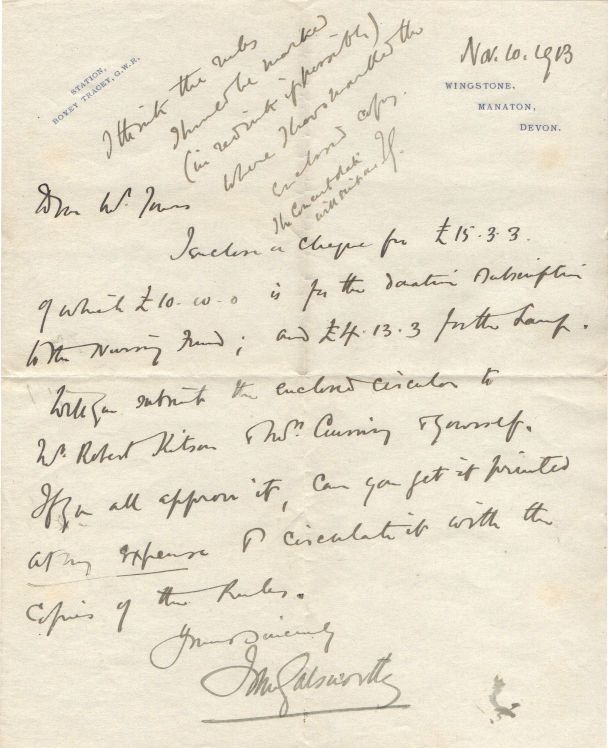 STATION,
BOVEY TRACEY, G.W.R.
Nov. 10. 1913
WINGSTONE,
MANATON,
DEVON.
I think the rules
should be marked
(in red ink if possible)
where I have marked the
enclosed copy.
JG.
Dear Mr. Jones
I enclose a cheque for £15.3.3.
of which £10.10.0 is for the donation subscription
to the Nursing Fund; and £4.13.3 for the Lamp.
Will you submit the enclosed circular to
Mr. Robert Kitson & Mrs Cunning & yourself.
If you all approve it, can you get it printed
at my expense & circulate it with the
copies of the Rules.
Yours sincerely
John Galsworthy